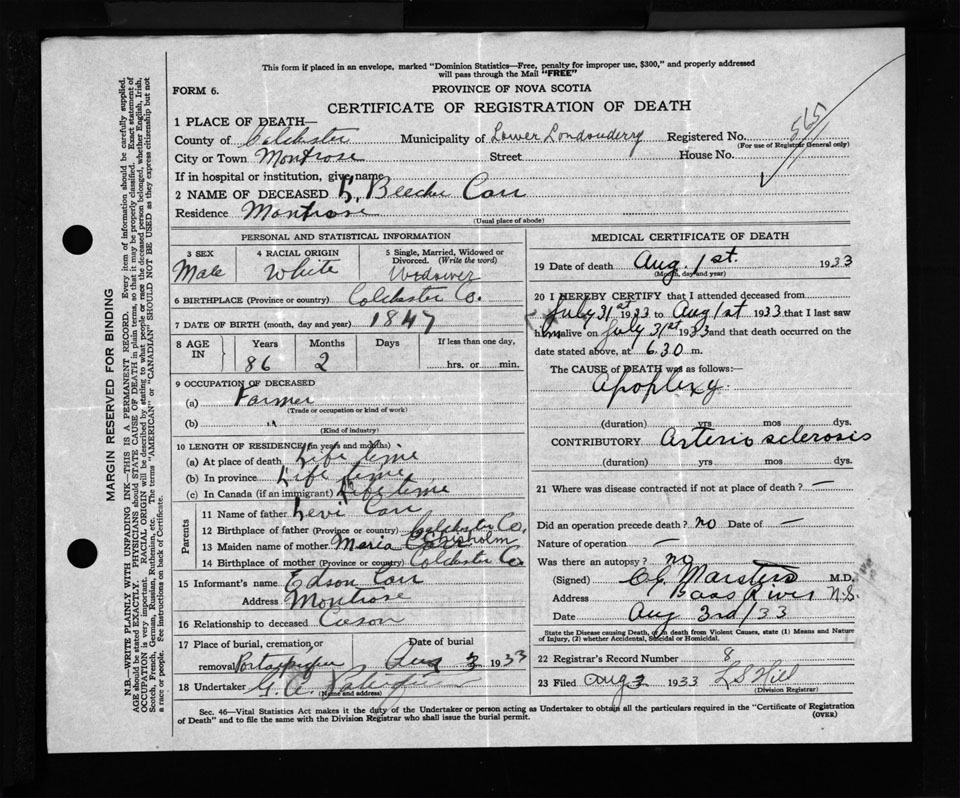 This form if placed in an envelope, marked "Dominion Statistics—Free, penalty for improper use, $300," and properly addressed
will pass through the Mail "FREE"
FORM 6.
PROVINCE OF NOVA SCOTIA
CERTIFICATE OF REGISTRATION OF DEATH
1 PLACE OF DEATH—
County of Colchester Municipality of Lower Londonderry Registered No.
(For use of Registrar General only)
City or Town Montrose Street House No.
If in hospital or institution, give name
2 NAME OF DECEASED Beecher Carr
Residence Montrose
(Usual place of abode)
PERSONAL AND STATISTICAL INFORMATION
3 SEX 4 RACIAL ORIGIN 5 Single, Married, Widowed or
Divorced. (Write the word)
Male White Widower
6 BIRTHPLACE (Province or country) Colchester Co.
7 DATE OF BIRTH (month, day and year) 1847
8 AGE IN Years Months Days If less than one day,
86 2 hrs. or min.
9 OCCUPATION OF DECEASED
(a) Farmer
(Trade or occupation or kind of work)
(b) "
(Kind of industry)
10 LENGTH OF RESIDENCE (in years and months)
(a) At place of death Life time
(b) In province Life time
(c) In Canada (if an immigrant) Life time
Parents
11 Name of father Levi Carr
12 Birthplace of father (Province or country) Colchester Co.
Chisholm
13 Maiden name of mother Maria Carr
14 Birthplace of mother (Province or country) Colchester Co
15 Informant's name Edson Carr
Address Montrose
16 Relationship to deceased
17 Place of burial, cremation or Date of burial
removal Portaupique Aug 3 1933
18 Undertaker G. A.
(Name and address)
MEDICAL CERTIFICATE OF DEATH
19 Date of death Aug. 1st. 1933
(Month, day and year)
20 I HEREBY CERTIFY that I attended deceased from
July 31st 1933 to Aug 1st 1933 that I last saw
him alive on July 31st 1933 and that death occurred on the
date stated above, at 6.30 m.
The CAUSE of DEATH was as follows:—
Apoplexy.
(duration) yrs mos dys.
CONTRIBUTORY Arterio sclerosis
(duration) yrs mos dys.
21 Where was disease contracted if not at place of death? —
Did an operation precede death? no Date of —
Nature of operation —
Was there an autopsy? no
(Signed) Marsters M.D.
Address Bass River N.S.
Date Aug 3rd/33
State the Disease causing Death, or in death from Violent Causes, state (1) Means and Nature
of Injury, (2) whether Accidental, Suicidal or Homicidal.
22 Registrar's Record Number 8
23 Filed Aug 3 1933 L S Hill
(Division Registrar)
Sec. 46—Vital Statistics Act makes it the duty of the Undertaker or person acting as Undertaker to obtain all the particulars required in the "Certificate of Registration
of Death" and to file the same with the Division Registrar who shall issue the burial permit.
(OVER)
MARGIN RESERVED FOR BINDING
N.B.—WRITE PLAINLY WITH UNFADING INK—THIS IS A PERMANENT RECORD. Every item of information should be carefully supplied.
AGE should be stated EXACTLY. PHYSICIANS should STATE CAUSE OF DEATH in plain terms, so that it may be properly classified. Exact statement of
OCCUPATION is very important. RACIAL ORIGIN will be described by stating to what people or race the deceased person belonged, whether English, Irish,
Scotch, French, German, Russian, Ruthenian, etc. The terms "AMERICAN" or "CANADIAN" SHOULD NOT BE USED as they express citizenship but not
a race or people. See instructions on back of Certificate.